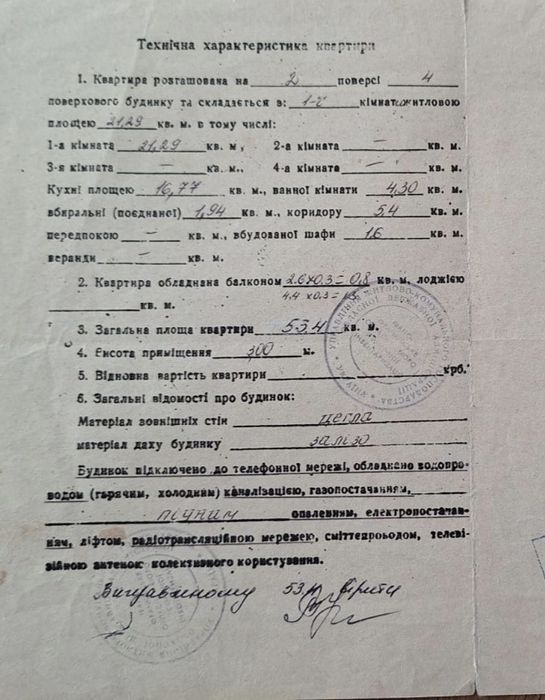 Технічна характеристика квартири
1. Квартира розташована на 2 поверсі 4
поверхового будинку та складається з: 1-ї кімнат житловою
площею 21,29 кв. м. в тому числі:
1-а кімната 21,29 кв. м, 2-а кімната — кв. м.
3-я кімната — кв. м., 4-а кімната — кв. м.
Кухні площею 16,77 кв. м., ванної кімнати 4,30 кв. м.
вбиральні (поєднаної) 1,94 кв. м., коридору 5,4 кв. м.
передпокою — кв. м., вбудованої шафи 1,6 кв. м.
веранди — кв. м.
2. Квартира обладнана балконом 2.6х0.3=0,8 кв. м, лоджією
4.4 х0.3=1.3
кв. м.
3. Загальна площа квартири 53.4 кв. м.
4. Висота приміщення 3,00 м.
5. Відновна вартість квартири крб.
6. Загальні відомості про будинок:
Матеріал зовнішніх стін цегла
матеріал даху будинку залізо
Будинок підключено до телефонної мережі, обладнано водопро-
водом (гарячим, холодним) каналізацією, газопостачанням,
пічним опаленням, електропостачан-
ням, ліфтом, радіотрансляційною мережею, сміттєпроводом, телеві-
зійною антеною колективного користування.
Виправленому 53.4 вірити